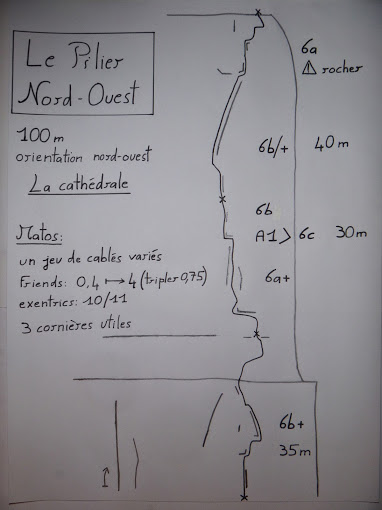 Le Pilier
Nord-Ouest
100 m
orientation nord-ouest
La cathédrale
Matos:
un jeu de cablés variés
Friends: 0,4 ↦ 4 (tripler 0,75)
exentrics: 10/11
3 cornières utiles
6a
⚠ rocher
6b/+ 40 m
6b
A1 > 6c 30m
6a+
6b+
35 m